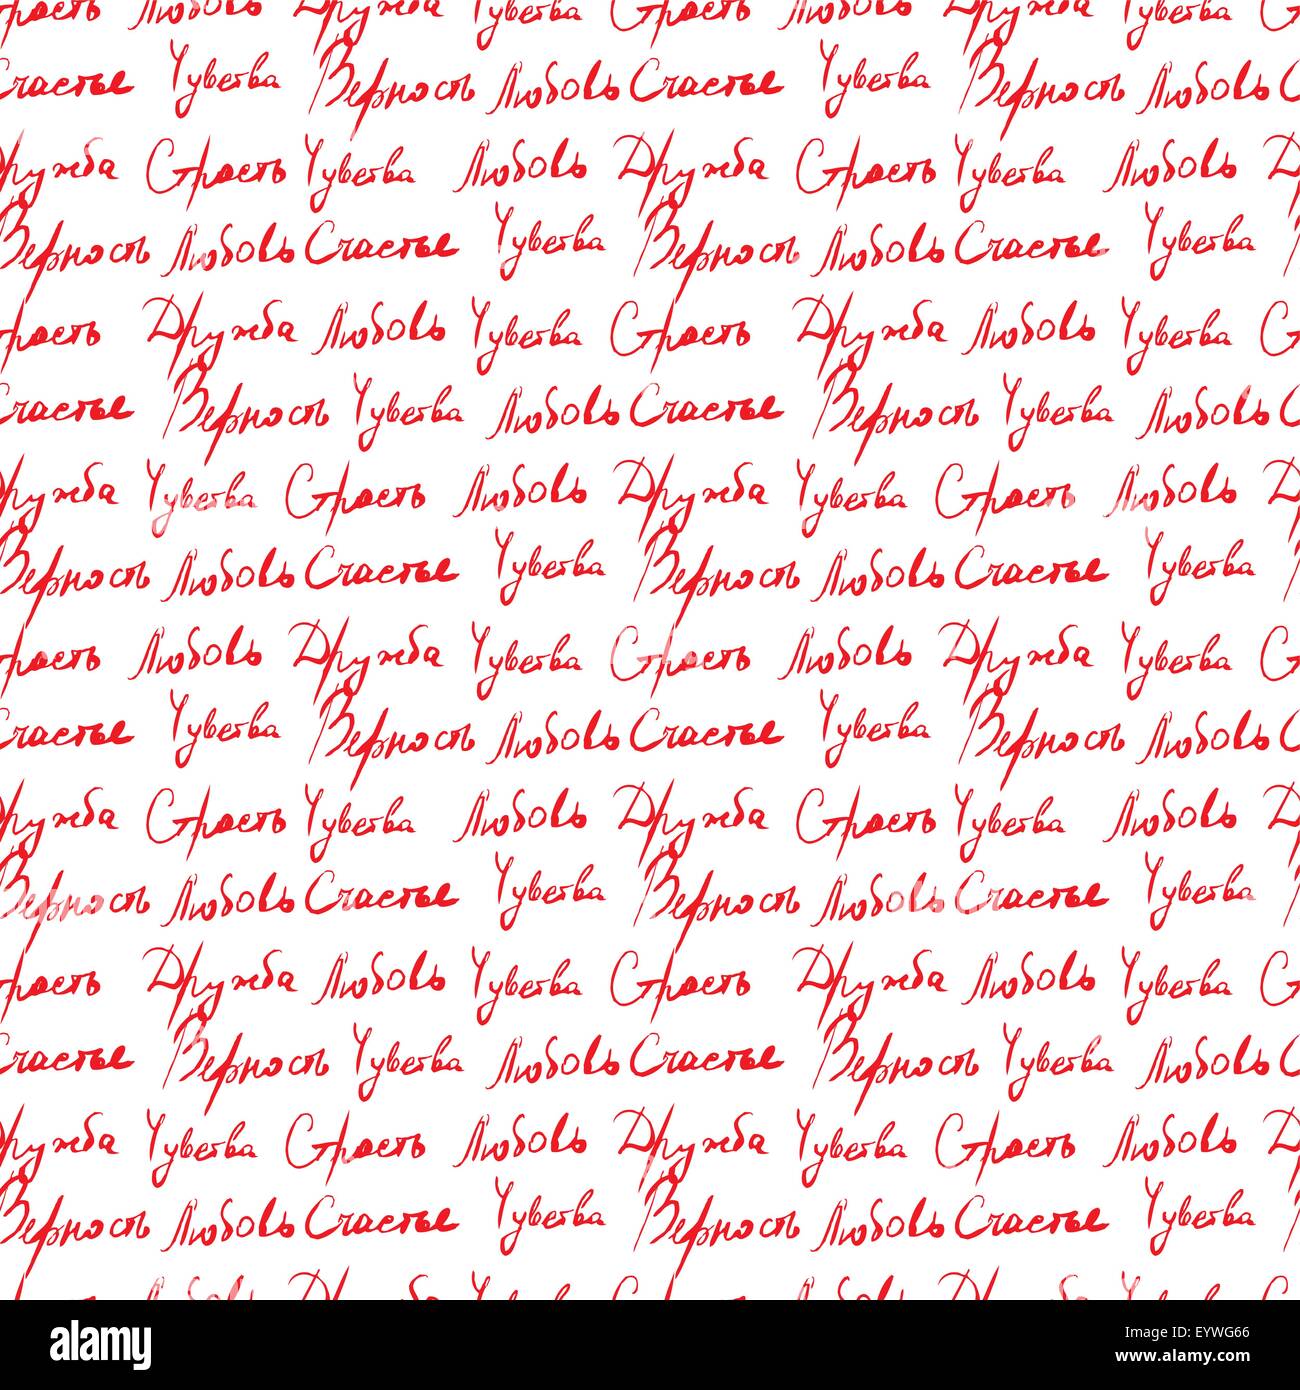 Страсть Любовь Дружба Чувства Страсть Любовь Дружба Чувства
Счастье Чувства Верность Любовь Счастье Чувства Верность Любовь
Дружба Страсть Чувства Любовь Дружба Страсть Чувства Любовь
Верность Любовь Счастье Чувства Верность Любовь Счастье Чувства
Страсть Дружба Любовь Чувства Страсть Дружба Любовь Чувства
Счастье Верность Чувства Любовь Счастье Верность Чувства Любовь
Дружба Чувства Страсть Любовь Дружба Чувства Страсть Любовь
Верность Любовь Счастье Чувства Верность Любовь Счастье Чувства
Страсть Любовь Дружба Чувства Страсть Любовь Дружба Чувства
Счастье Чувства Верность Любовь Счастье Чувства Верность Любовь
Дружба Страсть Чувства Любовь Дружба Страсть Чувства Любовь
Верность Любовь Счастье Чувства Верность Любовь Счастье Чувства
Страсть Дружба Любовь Чувства Страсть Дружба Любовь Чувства
Счастье Верность Чувства Любовь Счастье Верность Чувства Любовь
Дружба Чувства Страсть Любовь Дружба Чувства Страсть Любовь
Верность Любовь Счастье Чувства Верность Любовь Счастье Чувства
alamy
Image ID: EYWG66
www.alamy.com